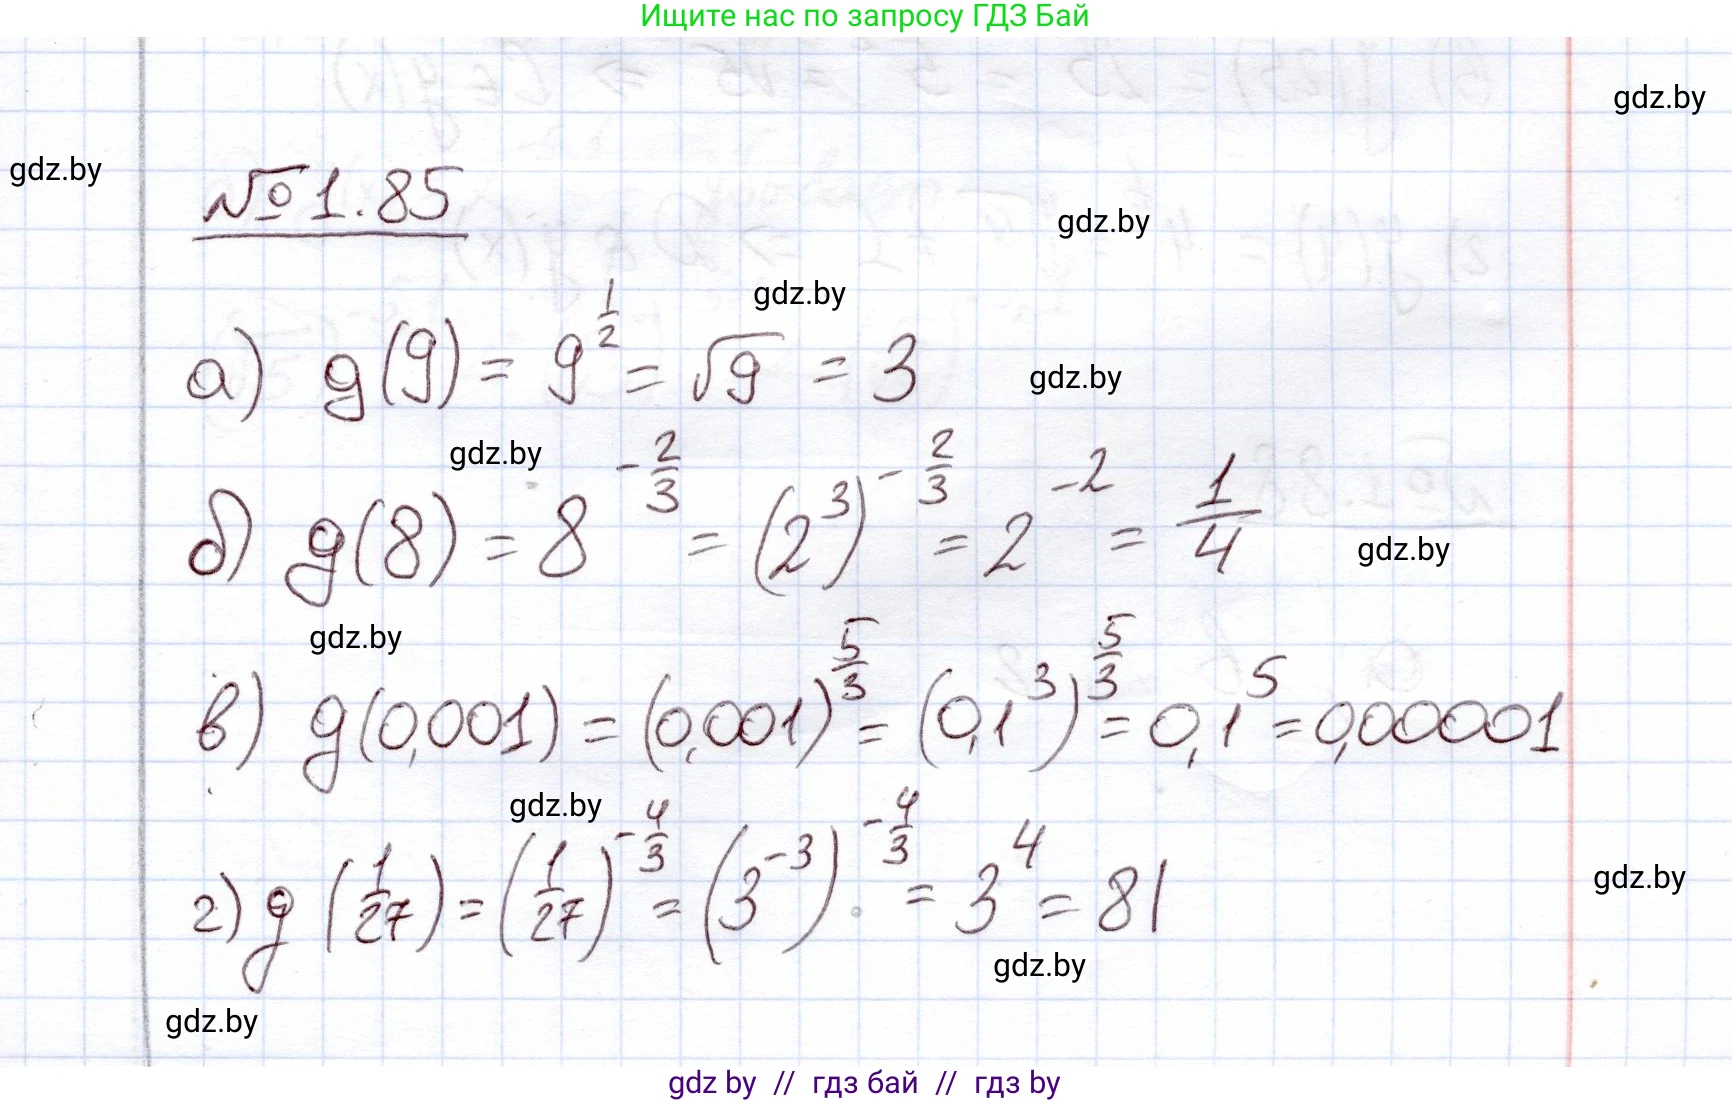 Ищите нас по запросу ГДЗ Бай
gdz.by
gdz.by
№1.85
gdz.by
gdz.by
а) g(9) = 9^{1/2} = √9 = 3
gdz.by
gdz.by
б) g(8) = 8^{-2/3} = (2^3)^{-2/3} = 2^{-2} = 1/4
gdz.by
gdz.by
в) g(0,001) = (0,001)^{5/3} = (0,1^3)^{5/3} = 0,1^5 = 0,00001
gdz.by
г) g(1/27) = (1/27)^{-4/3} = (3^{-3})^{-4/3} = 3^4 = 81
gdz.by
gdz.by
gdz.by
gdz by // гдз бай // гдз by